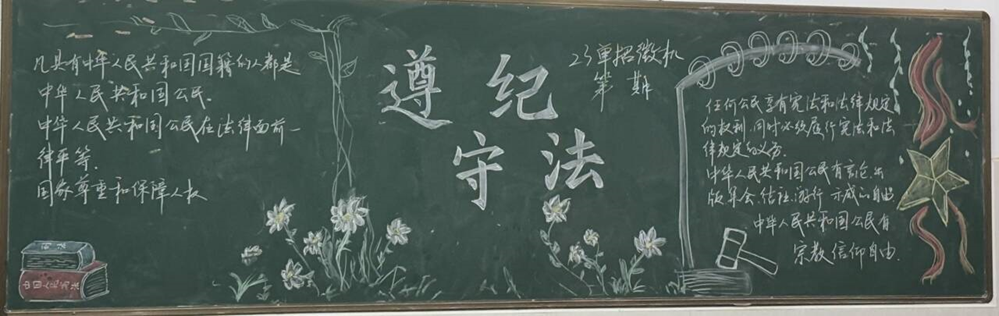 凡具有中华人民共和国国籍的人都是
中华人民共和国公民.
中华人民共和国公民在法律面前一
律平等.
国家尊重和保障人权
遵纪
守法
23单招微机
第 期
任何公民享有宪法和法律规定
的权利,同时必须履行宪法和法
律规定的义务.
中华人民共和国公民有言论.出
版.集会.结社.游行.示威的自由
中华人民共和国公民有
宗教信仰自由.